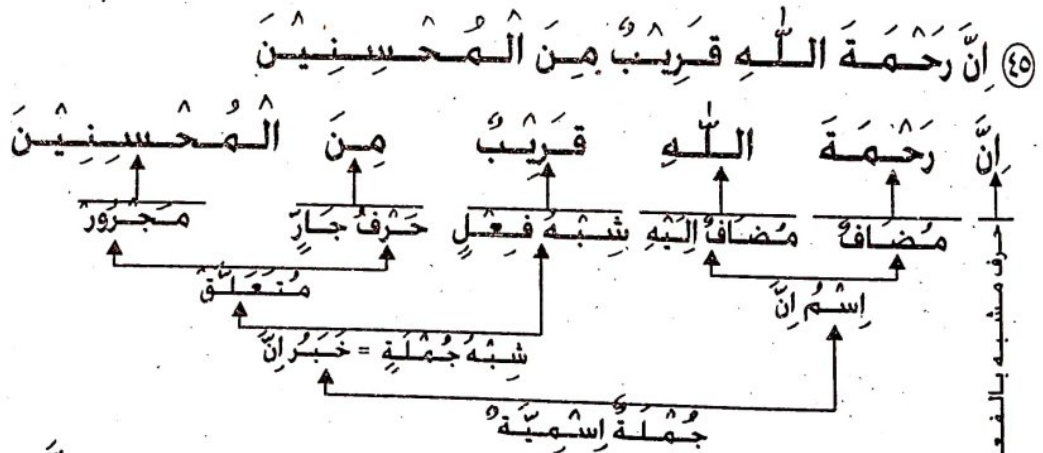 ٤٥ اِنَّ رَحْمَةَ اللّٰهِ قَرِيْبٌ مِنَ الْمُحْسِنِيْنَ
اِنَّ رَحْمَةَ اللّٰهِ قَرِيْبٌ مِنَ الْمُحْسِنِيْنَ
مُضَافٌ مُضَافٌ اِلَيْهِ شِبْهُ فِعْلٍ حَرْفُ جَارٍّ مَجْرُوْرٌ
مُتَعَلَّقٌ
اِسْمُ اِنَّ
شِبْهُ جُمْلَةٍ = خَبَرُ اِنَّ
جُمْلَةٌ اِسْمِيَّةٌ
مشبه بالفع